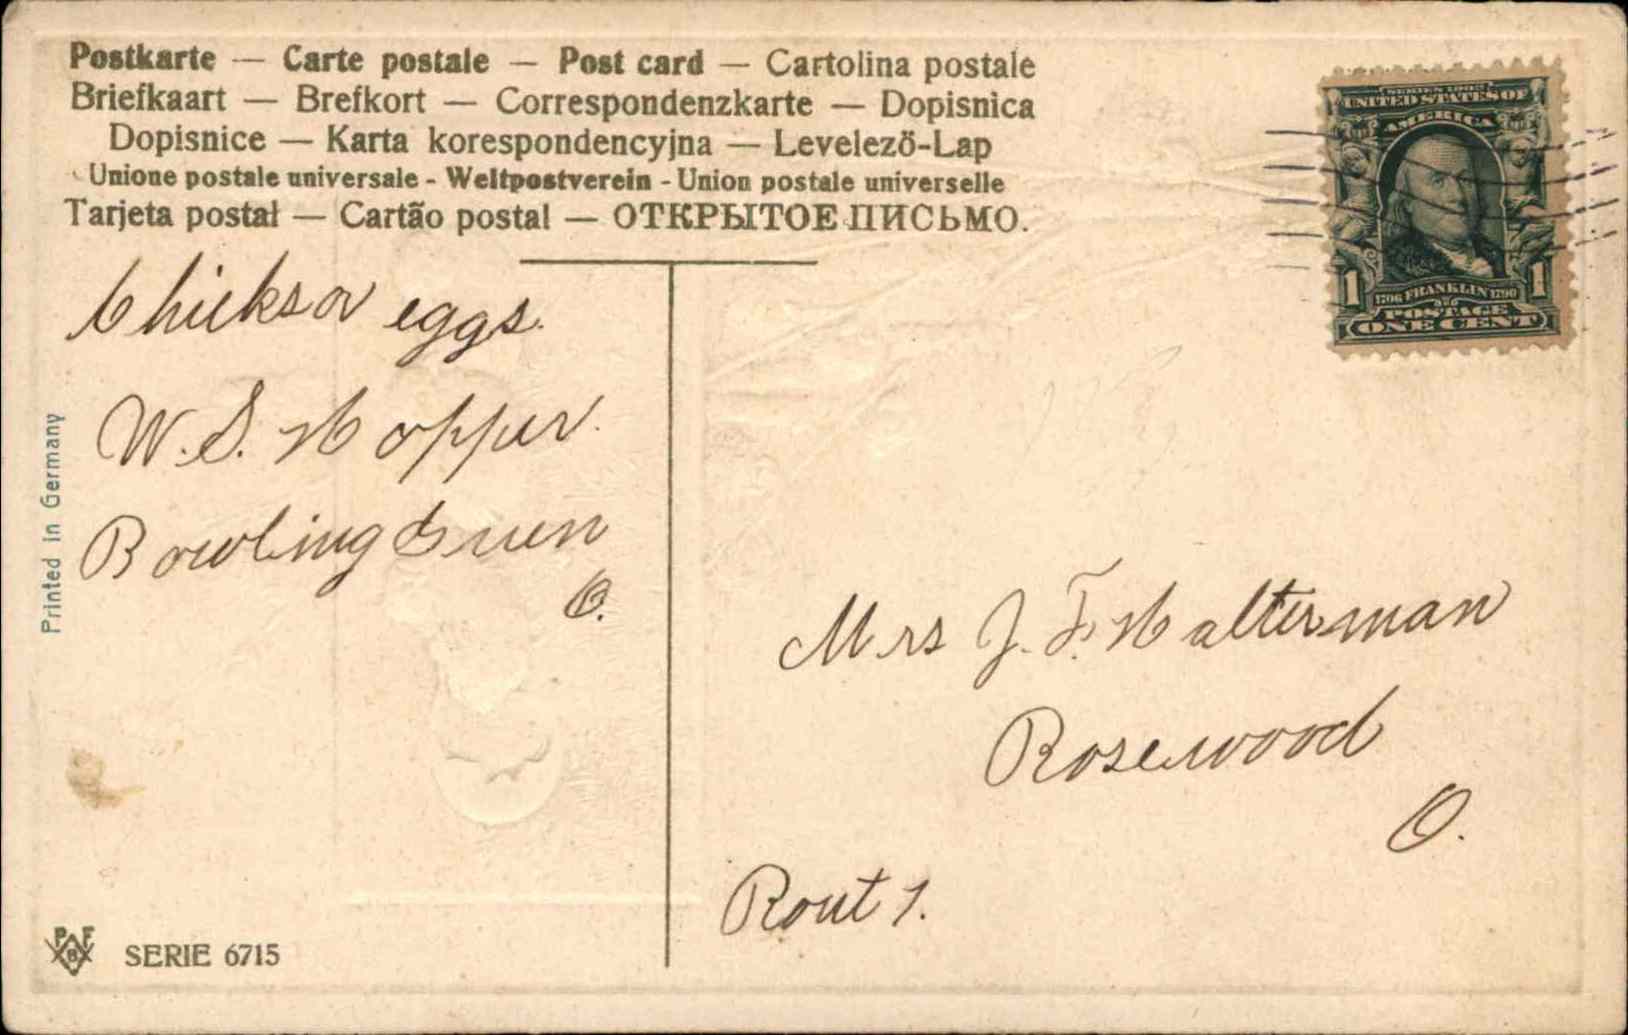 Postkarte — Carte postale — Post card — Cartolina postale
Briefkaart — Brefkort — Correspondenzkarte — Dopisnica
Dopisnice — Karta korespondencyjna — Levelező-Lap
Unione postale universale - Weltpostverein - Union postale universelle
Tarjeta postal — Cartão postal — ОТКРЫТОЕ ПИСЬМО.
SERIES 1902
UNITED STATES OF
AMERICA
1 1
1706 FRANKLIN 1790
POSTAGE
ONE CENT
Chicks or eggs.
W. S. Hopper.
Bowling Green
O.
Printed in Germany
Mrs J. F. Halterman
Rosewood
O.
Rout 1.
P F
B
SERIE 6715